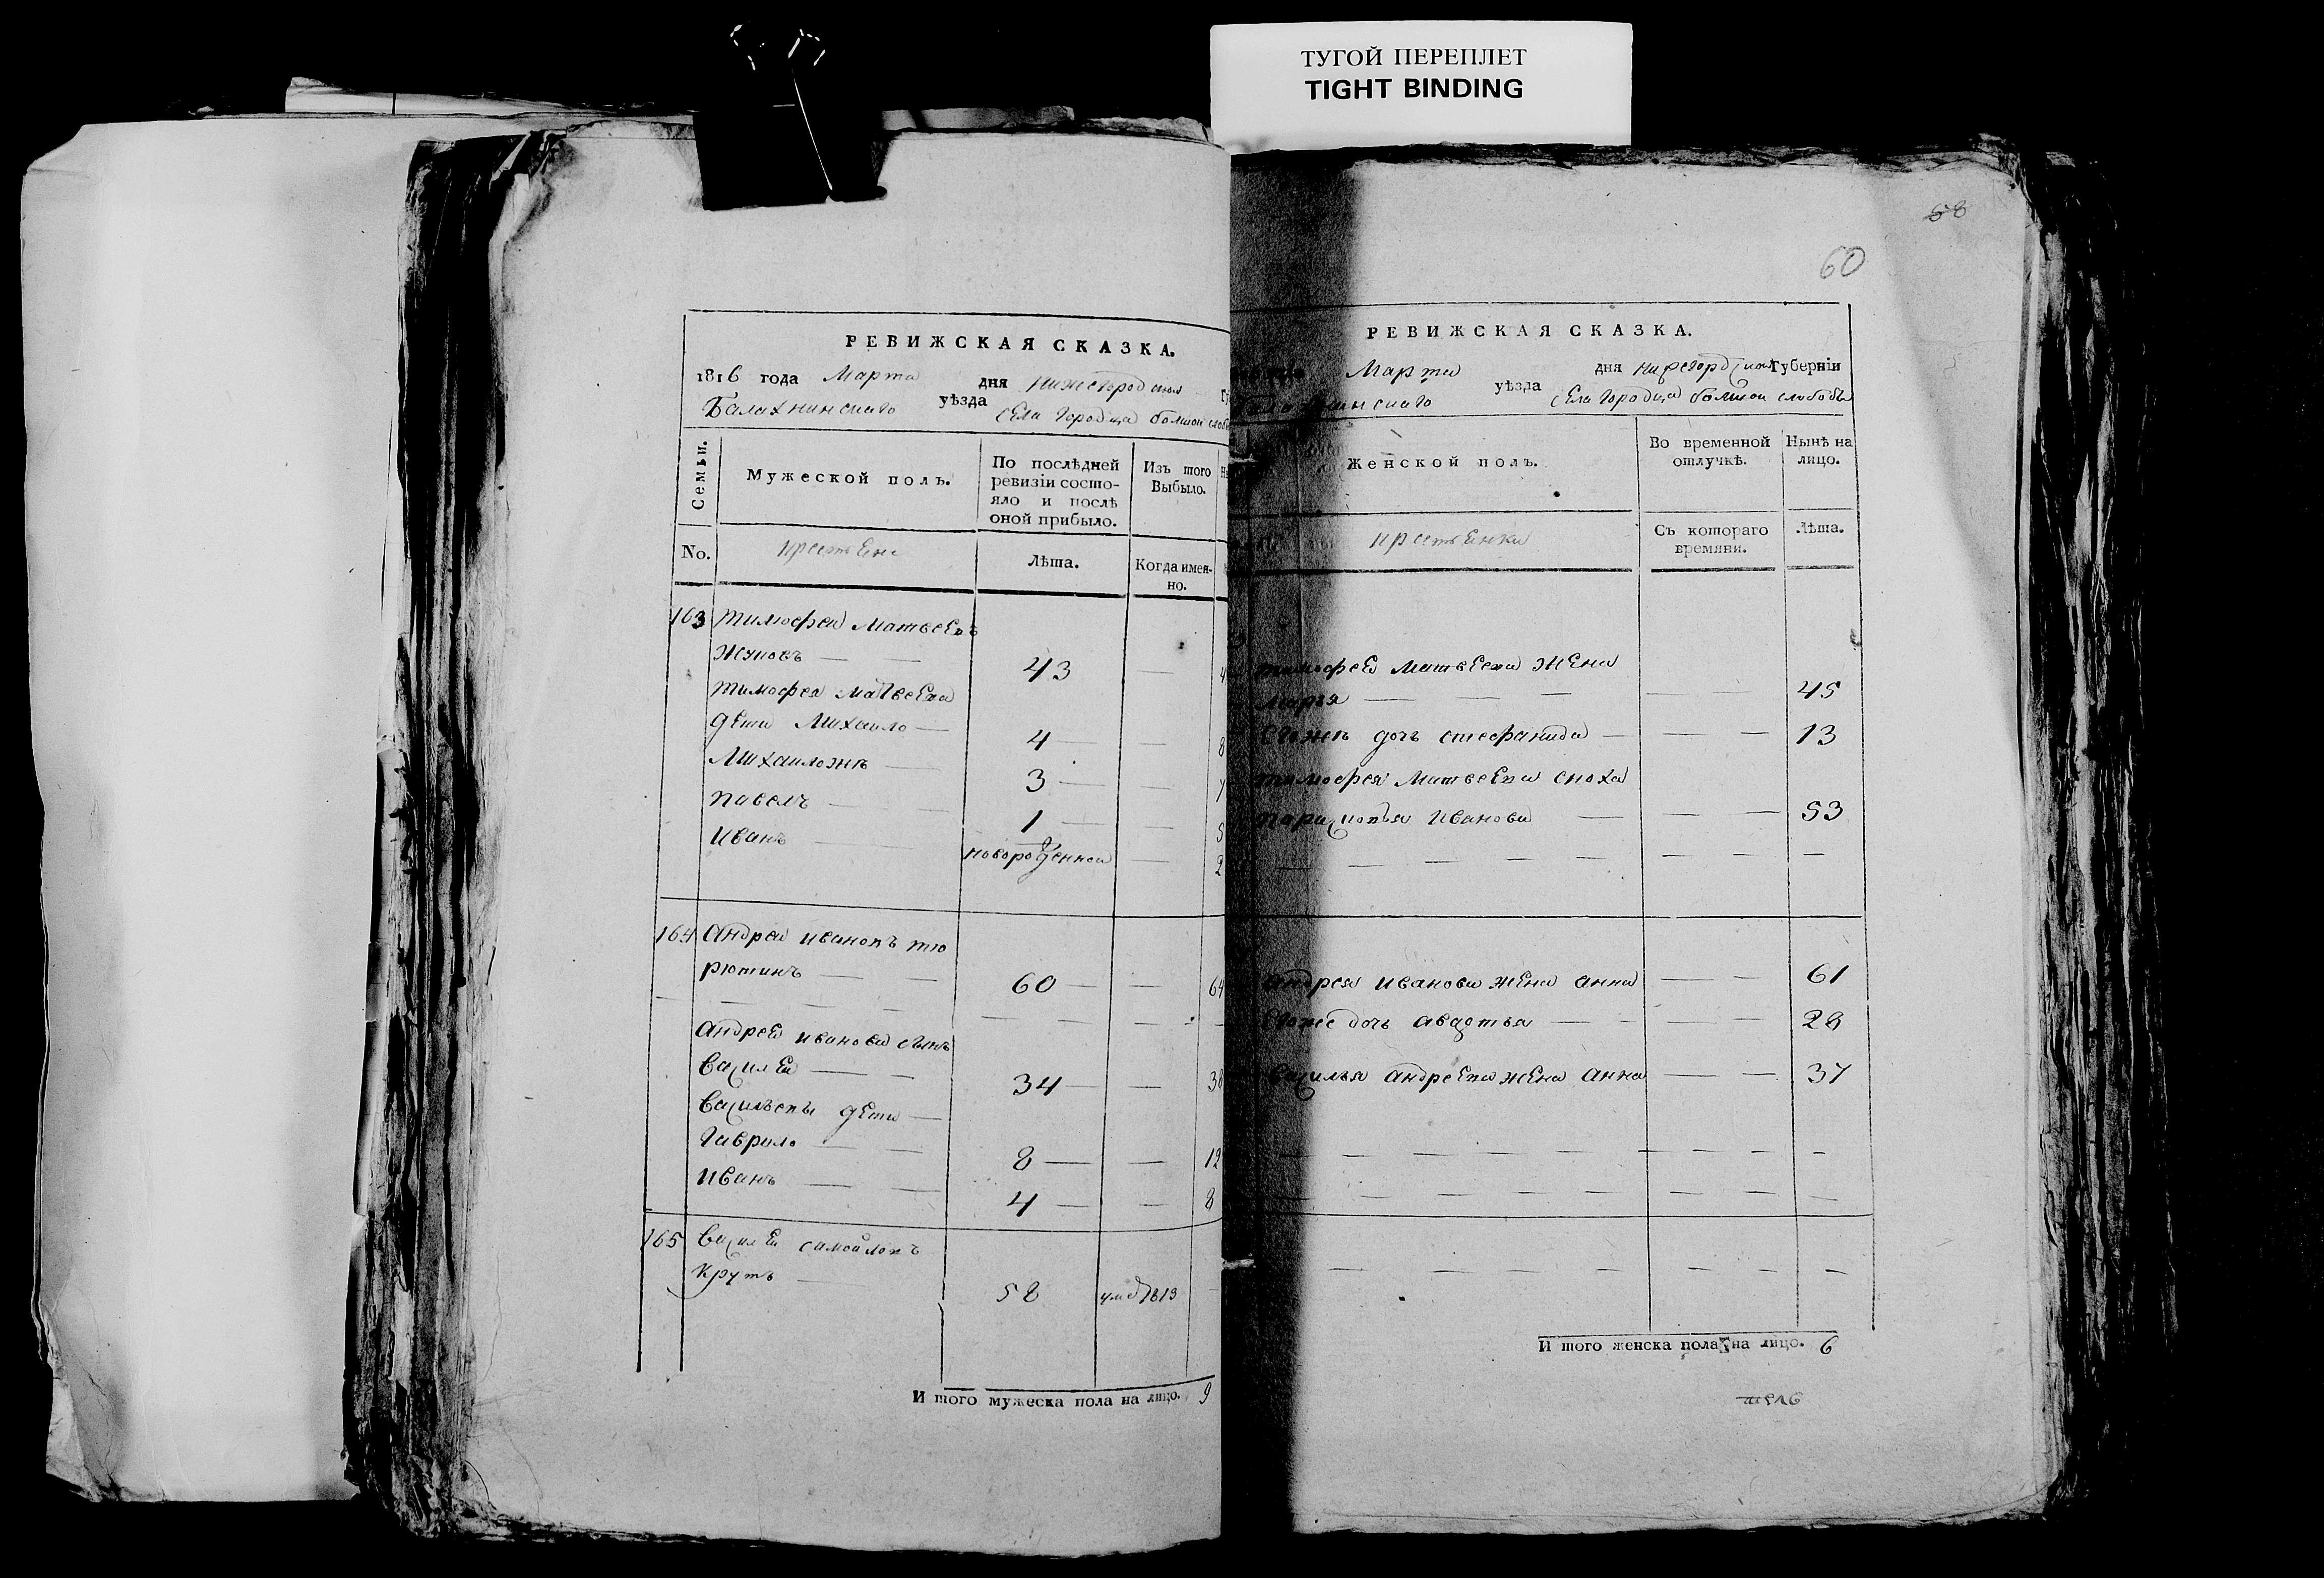 ТУГОЙ ПЕРЕПЛЕТ
TIGHT BINDING
58
60
РЕВИЖСКАЯ СКАЗКА.
1816 года Марта дня Нижегородской
Балахнинскаго уѣзда села Городца болшой
Семьи. Мужеской полъ. По послѣдней ревизіи состояло и послѣ оной прибыло. Изъ того Выбыло.
No. крестьяне Лѣта. Когда именно.
163 Тимофей Матвеевъ
Жуковъ — — 43 —
Тимофея Матвеева
дети Михайло — 4 — —
Михайложъ — 3 — —
Павелъ — — 1 — — 5
Иванъ — новорожденной — 2
164 Андрей Ивановъ Тю
рютинъ — — 60 — — 64
Андрея Иванова сынъ
Василей — — 34 — — 38
Васильевы дети —
Гаврило — — 8 — — 12
Иванъ — — 4 — — 8
165 Василей Самойловъ
Крутъ — 58 1813
И того мужеска пола на лицо. 9
РЕВИЖСКАЯ СКАЗКА.
Марта дня Губерніи
уѣзда села Городца болшой слободы
Женской полъ. Во временной отлучкѣ. Нынѣ на лицо.
крестьянки Съ котораго времяни. Лѣта.
Тимофея Матвеева жена
Марья — — — — — 45
дочь Стефанида — — — 13
Тимофея Матвеева сноха
Иванова — — — 53
Андрея Иванова жена Анна — — 61
Егоже дочь Авдотья — — — — 28
Василья Андреева жена Анна — — 37
И того женска пола на лицо. 6